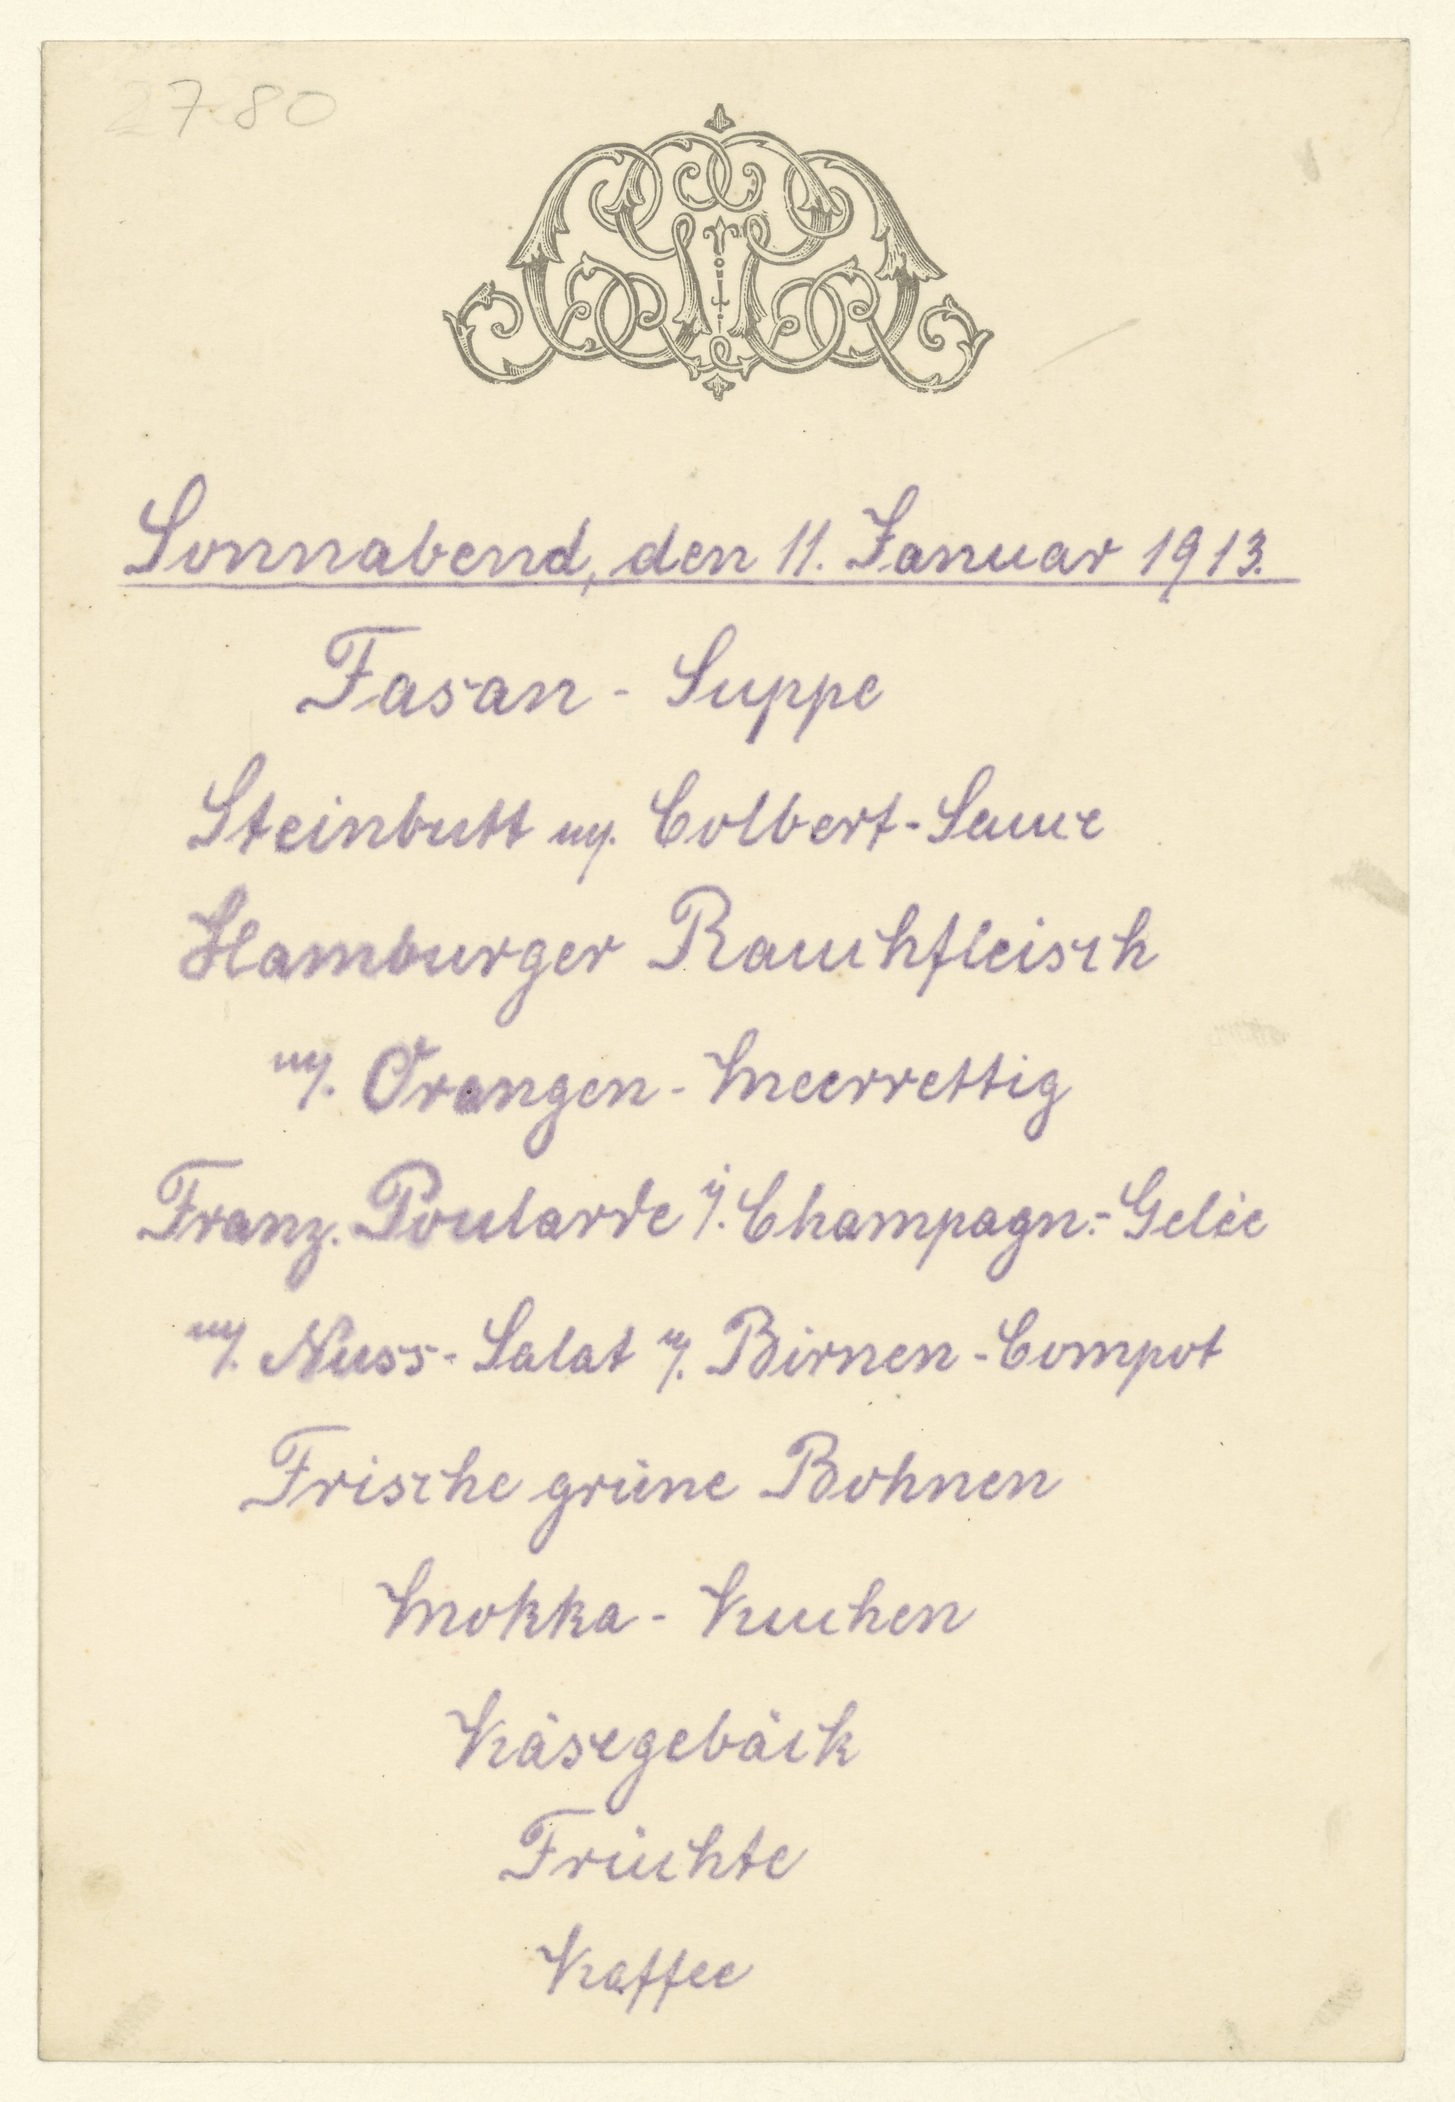 2780
Sonnabend, den 11. Januar 1913.
Fasan - Suppe
Steinbutt m/. Colbert-Sauce
Hamburger Rauchfleisch
m/. Orangen - Meerrettig
Franz. Poularde i/. Champagn.-Gelée
m/. Nuss - Salat u/. Birnen - Compot
Frische grüne Bohnen
Mokka - Kuchen
Käsegebäck
Früchte
Kaffee